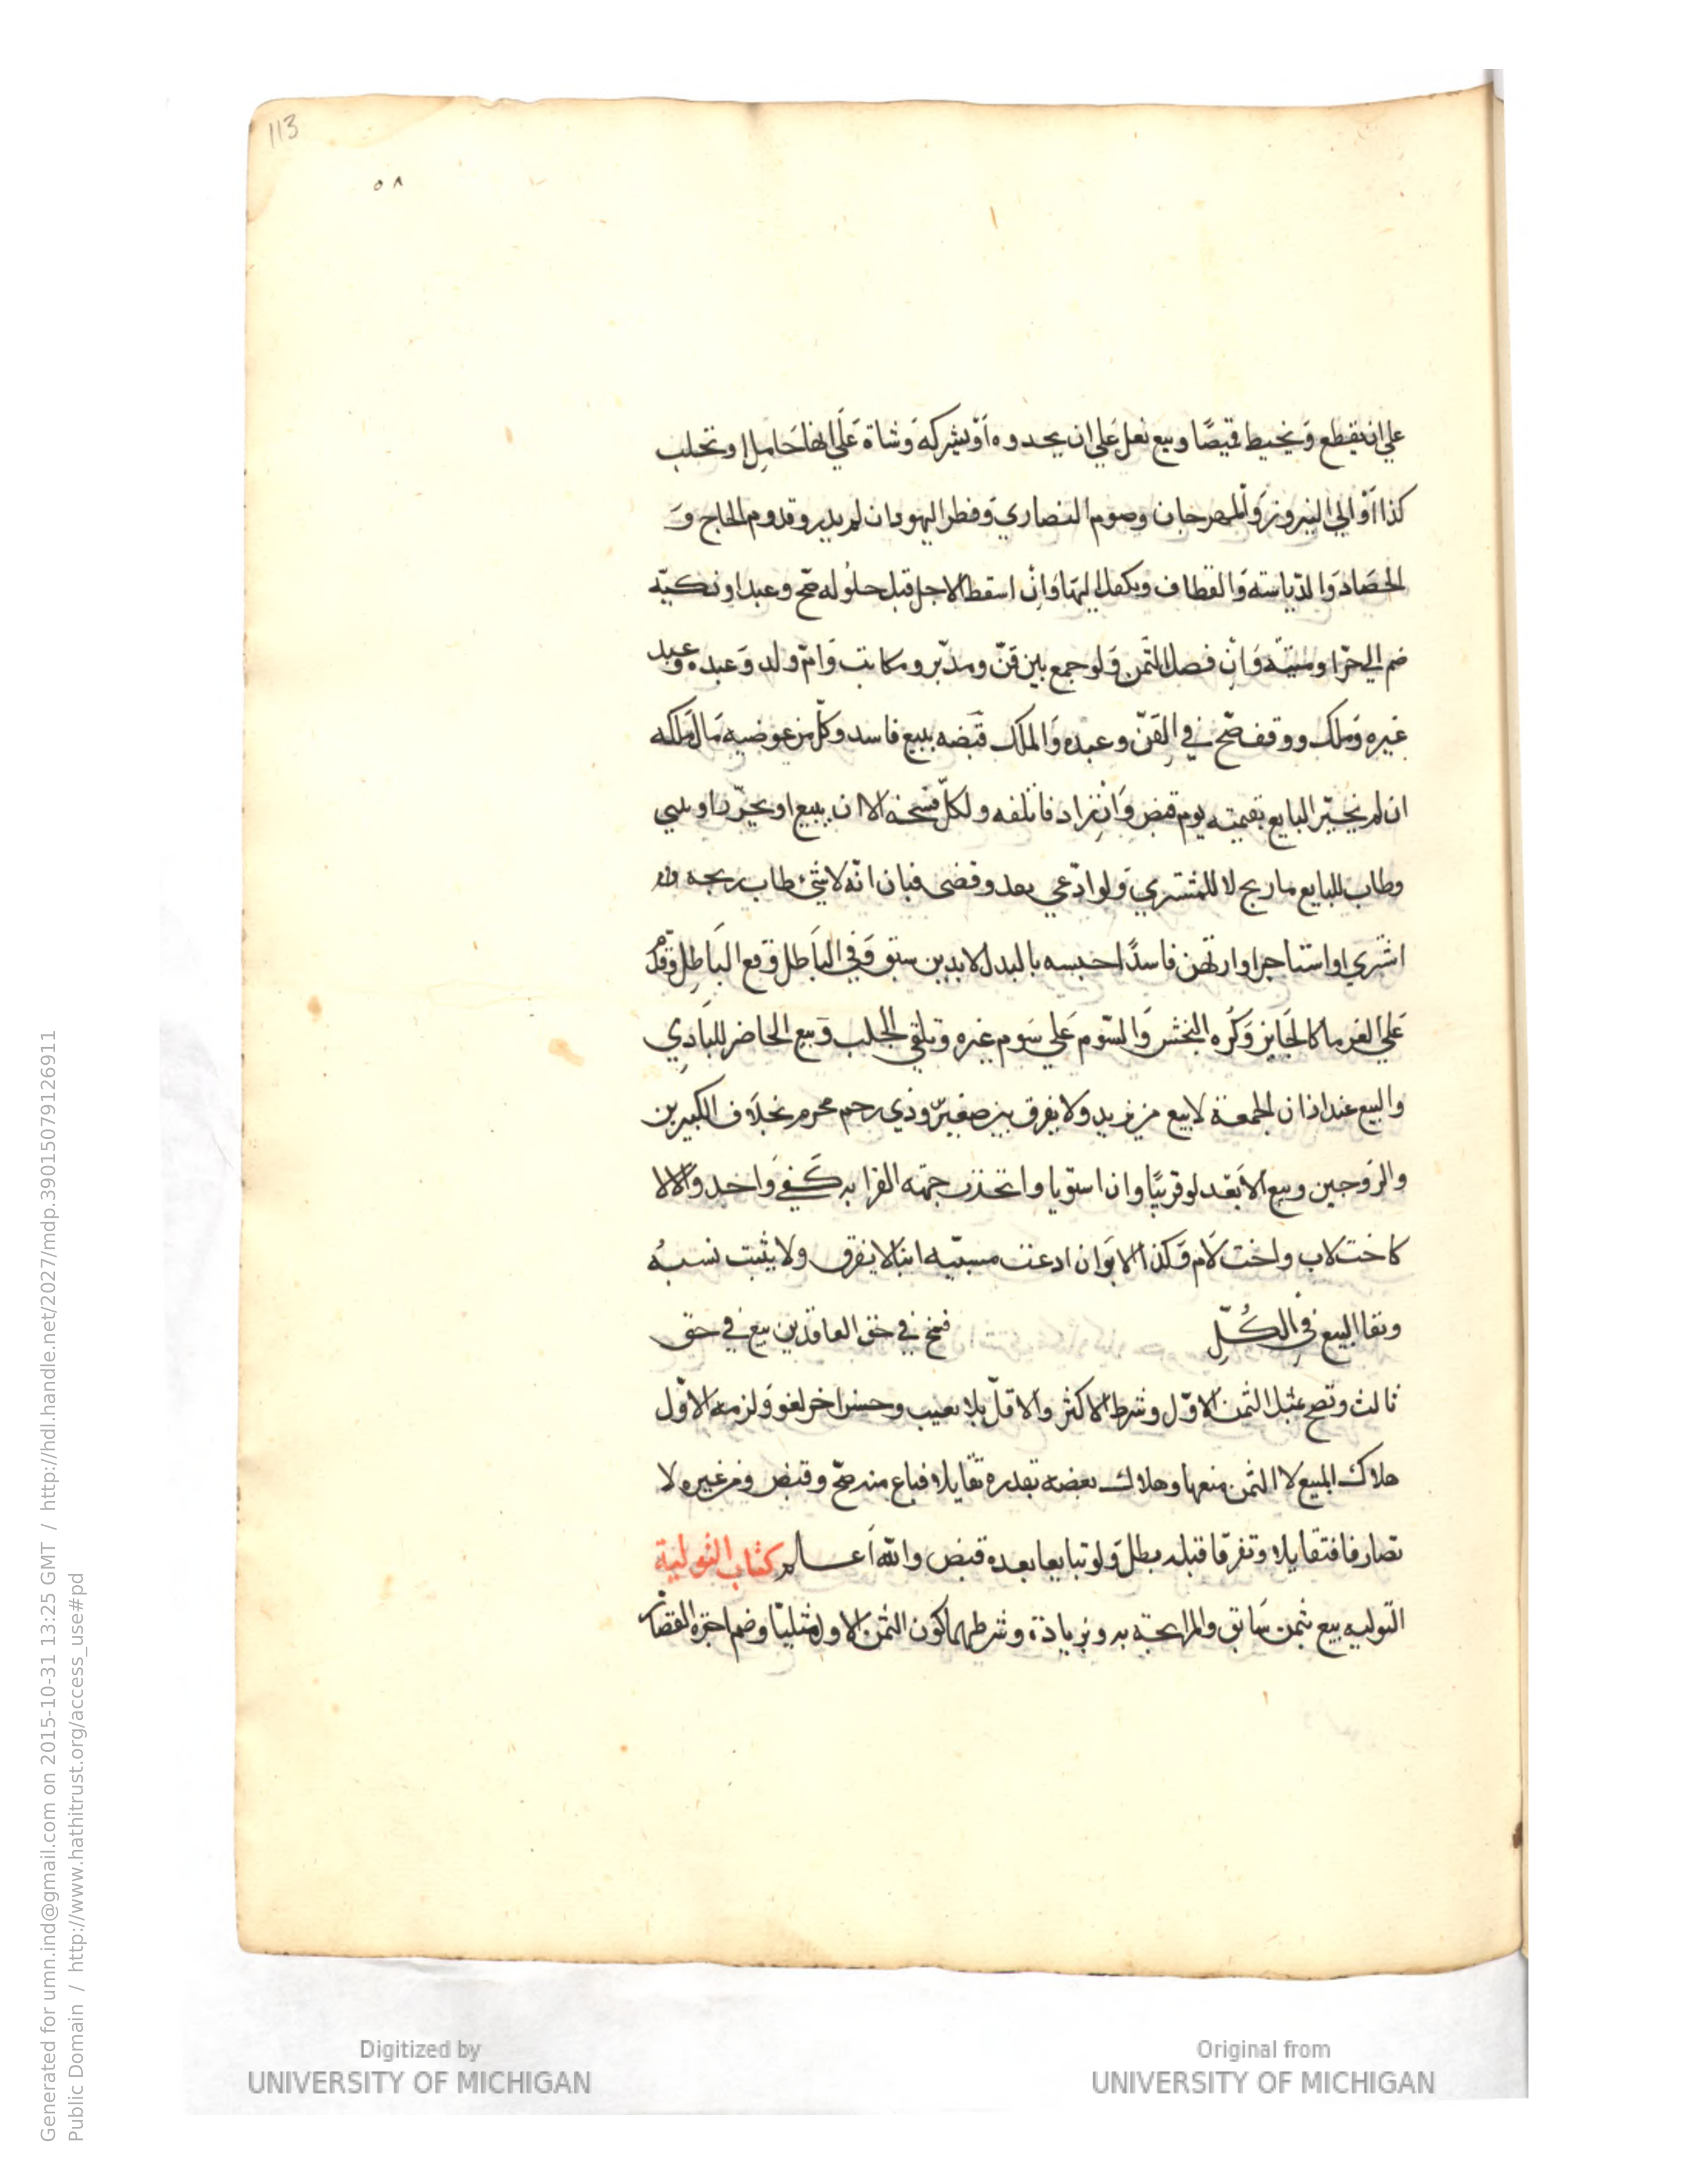 113
٥٨
علي ان يقطع وَيخيط قميصًا وبيع نعل عَلي ان يحدوه اَوْ يشركه وَشاة عَلَي انها حَامِل او تحلب
كذا اَوْ الي النيروز وَالمهرجان وصوم النصاري وَفطر اليهود ان لم يدر وقدوم الحاج وَ
الحصَاد وَالدّياسته وَالقطاف ويكفل اليها وَانْ اسقط الاجل قبل حلُوله صَحّ وعبد او ذكيّه
ضم الي حرّ او ميتَه وَانِ فصل الثمن وَلو جمع بين قنّ ومدبّر ومكاتب وَامّ ولد وَعبده وعبد
غيره وَملك ووقف صَحّ في القنّ وعبده وَالملك قبَضه ببيع فاسد وكلّ من عوضيه مَال مَلكه
ان لم يخيّر البايع بقيمته يوم قبض وَانْ زاد فاتلفه ولكلّ فسخه الا ان يبيع او يحرّر او يبني
وطاب للبايع ما ربح لا للمشتري وَلو ادّعي بعد وقضي فبان انّه لا شئ طاب ربحه ولو
اشتري او استاجر او ارتهن فاسدًا حبسه بالبدل لا بدين سبق وَفي البَاطل وَمع البَاطِل وَقدّم
عَلي الغرما كالجَايز وَكُره النجش وَالسّوم عَلي سَوم غيره وتلقي الجلب وَبيع الحاضر للبَادِي
والبيع عند اذان الجمعة لا بيع من يزيد ولا يفرق بين صغير وذي رحم محرم بخلَاف الكبيرين
والزوجين وبيع الاَبعد لو قريبًا وان استويا واتحذت جهته القرابه كَفي وَاحد وَالا لا
كاخت لاب واخت لام وَكذا الابوان ادعت مسبيّه ابنا لا يفرق ولا يثبت نسبُه
وبقا البيع في الكُلِّ فسخ في حق العاقدين بيع في حق
ثالث وتصح بمثل الثمن الاوّل وشرط الاكثر والاقلّ بلا تعيب وجنس اخر لغو وَلزمه الاوّل
هلاك المبيع لا الثمن منعها وهلاك بعضه بقدره تقايلا فباع منه صحّ وقبض ومن غيره لا
تصارفا فتقايلا وتفرقا قبله بطل وَلو تبايعا بعده قبض والله اَعلم كتاب التولية
التوليه بيع بثمن سَابق والمرابحة به وبزيادة وشرطهما كون الثمن الاول مثليّا وضم اجرة القصّار
Generated for umn.ind@gmail.com on 2015-10-31 13:25 GMT / http://hdl.handle.net/2027/mdp.39015079126911
Public Domain / http://www.hathitrust.org/access_use#pd
Digitized by
UNIVERSITY OF MICHIGAN
Original from
UNIVERSITY OF MICHIGAN